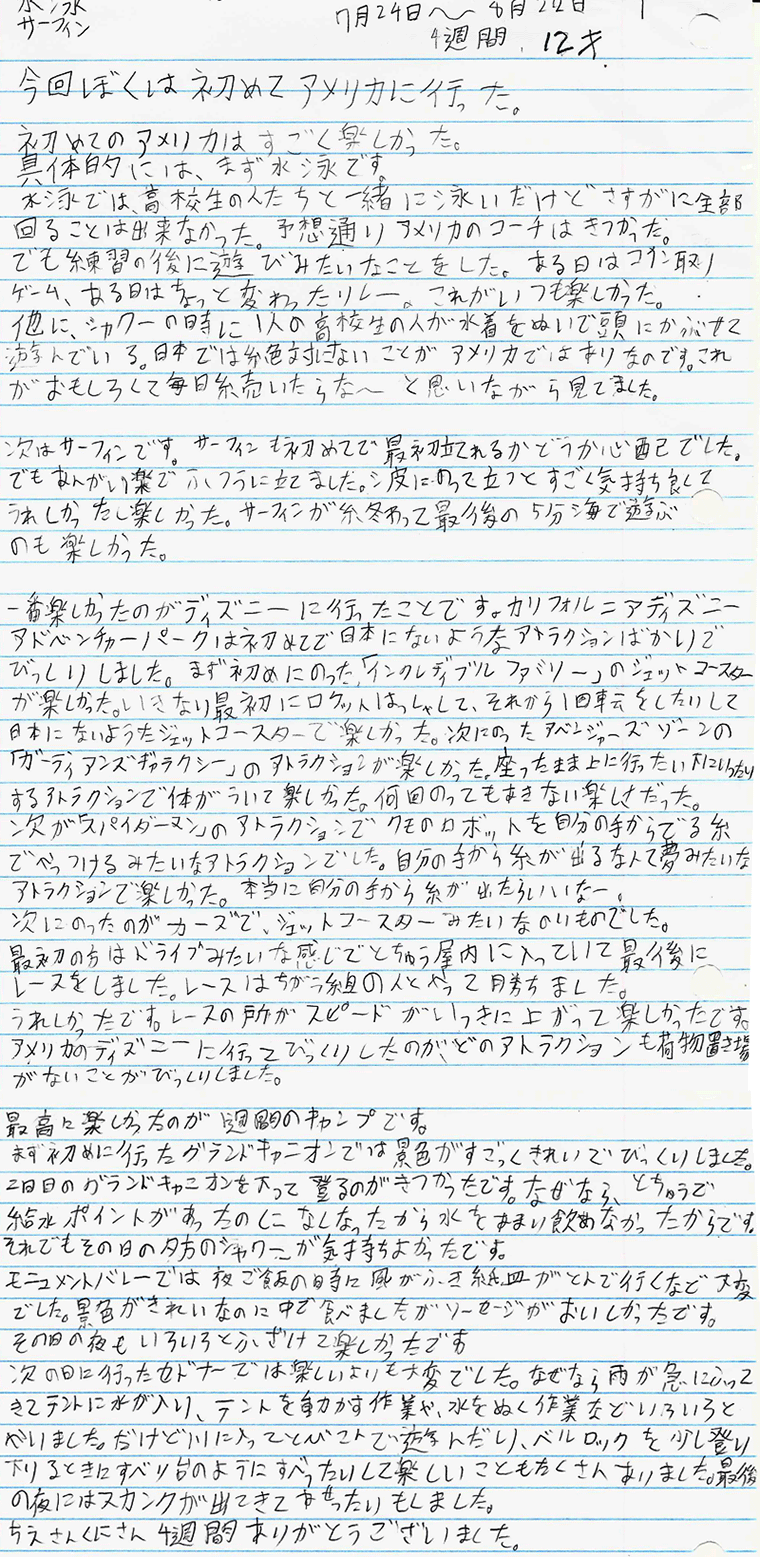 水泳
サーフィン
7月24日〜8月22日
4週間. 12才.
今回ぼくは初めてアメリカに行った。
初めてのアメリカはすごく楽しかった。
具体的には、まず水泳です。
水泳では、高校生の人たちと一緒に泳いだけどさすがに全部
回ることは出来なかった。予想通りアメリカのコーチはきつかった。
でも練習の後に遊びみたいなことをした。ある日はコイン取り
ゲーム、ある日はちょっと変わったリレー。これがいつも楽しかった。
他に、シャワーの時に1人の高校生の人が水着をぬいで頭にかぶせて
遊んでいる。日本では絶対にないことがアメリカではありなのです。これ
がおもしろくて毎日続いたらな〜と思いながら見てました。
次はサーフィンです。サーフィンも初めてで最初立てれるかどうか心配でした。
でもあんがい楽でふつうに立てました。波にのって立つとすごく気持ち良くて
うれしかったし楽しかった。サーフィンが終わって最後の5分海で遊ぶ
のも楽しかった。
一番楽しかったのがディズニーに行ったことです。カリフォルニアディズニー
アドベンチャーパークは初めてで日本にないようなアトラクションばかりで
びっくりしました。まず初めにのった「インクレディブルファミリー」のジェットコースター
が楽しかった。いきなり最初にロケットはっしゃして、それから1回転をしたいして
日本にないようたジェットコースターで楽しかった。次にのったアベンジャーズゾーンの
「ガーディアンズギャラクシー」のアトラクションが楽しかった。座ったまま上に行ったい下にいったり
するアトラクションで体がういて楽しかった。何回のってもあきない楽しさだった。
次が「スパイダーマン」のアトラクションでクモのロボットを自分の手からでる糸
でべっつけるみたいなアトラクションでした。自分の手から糸が出るなんて夢みたいな
アトラクションで楽しかった。本当に自分の手から糸が出たらいいなー。
次にのったのがカーズで、ジェットコースターみたいなのりものでした。
最初の方はドライブみたいな感じでとちゅう屋内に入っていて最後に
レースをしました。レースはちがう組の人とやって勝ちました。
うれしかったです。レースの時がスピードがいっきに上がって楽しかったです。
アメリカのディズニーに行ってびっくりしたのが、どのアトラクションも荷物置き場
がないことがびっくりしました。
最高に楽しかったのが1週間のキャンプです。
まず初めに行ったグランドキャニオンでは景色がすごっくきれいでびっくりしました。
2日目のグランドキャニオンを下って登るのがきつかったです。なぜなら、とちゅうで
給水ポイントがあったのになくなったから水をあまり飲めなかったからです。
それでもその日の夕方のシャワーが気持ちよかったです。
モニュメントバレーでは夜ご飯の時に風がふき紙皿がとんで行くなど大変
でした。景色がきれいなのに中で食べましたがソーセージがおいしかったです。
その日の夜もいろいろとふざけて楽しかったです
次の日に行ったセドナーでは楽しいよりも大変でした。なぜなら雨が急にふって
きてテントに水が入り、テントを動かす作業や、水をぬく作業などいろいろと
やりました。だけど川に入ってとびこんで遊んだり、ベルロックを少し登り
下りるときにすべり台のようにすべったいして楽しいこともたくさんありました。最後
の夜にはスカンクが出てきてあせったいもしました。
ちえさんくにさん4週間ありがとうございました。